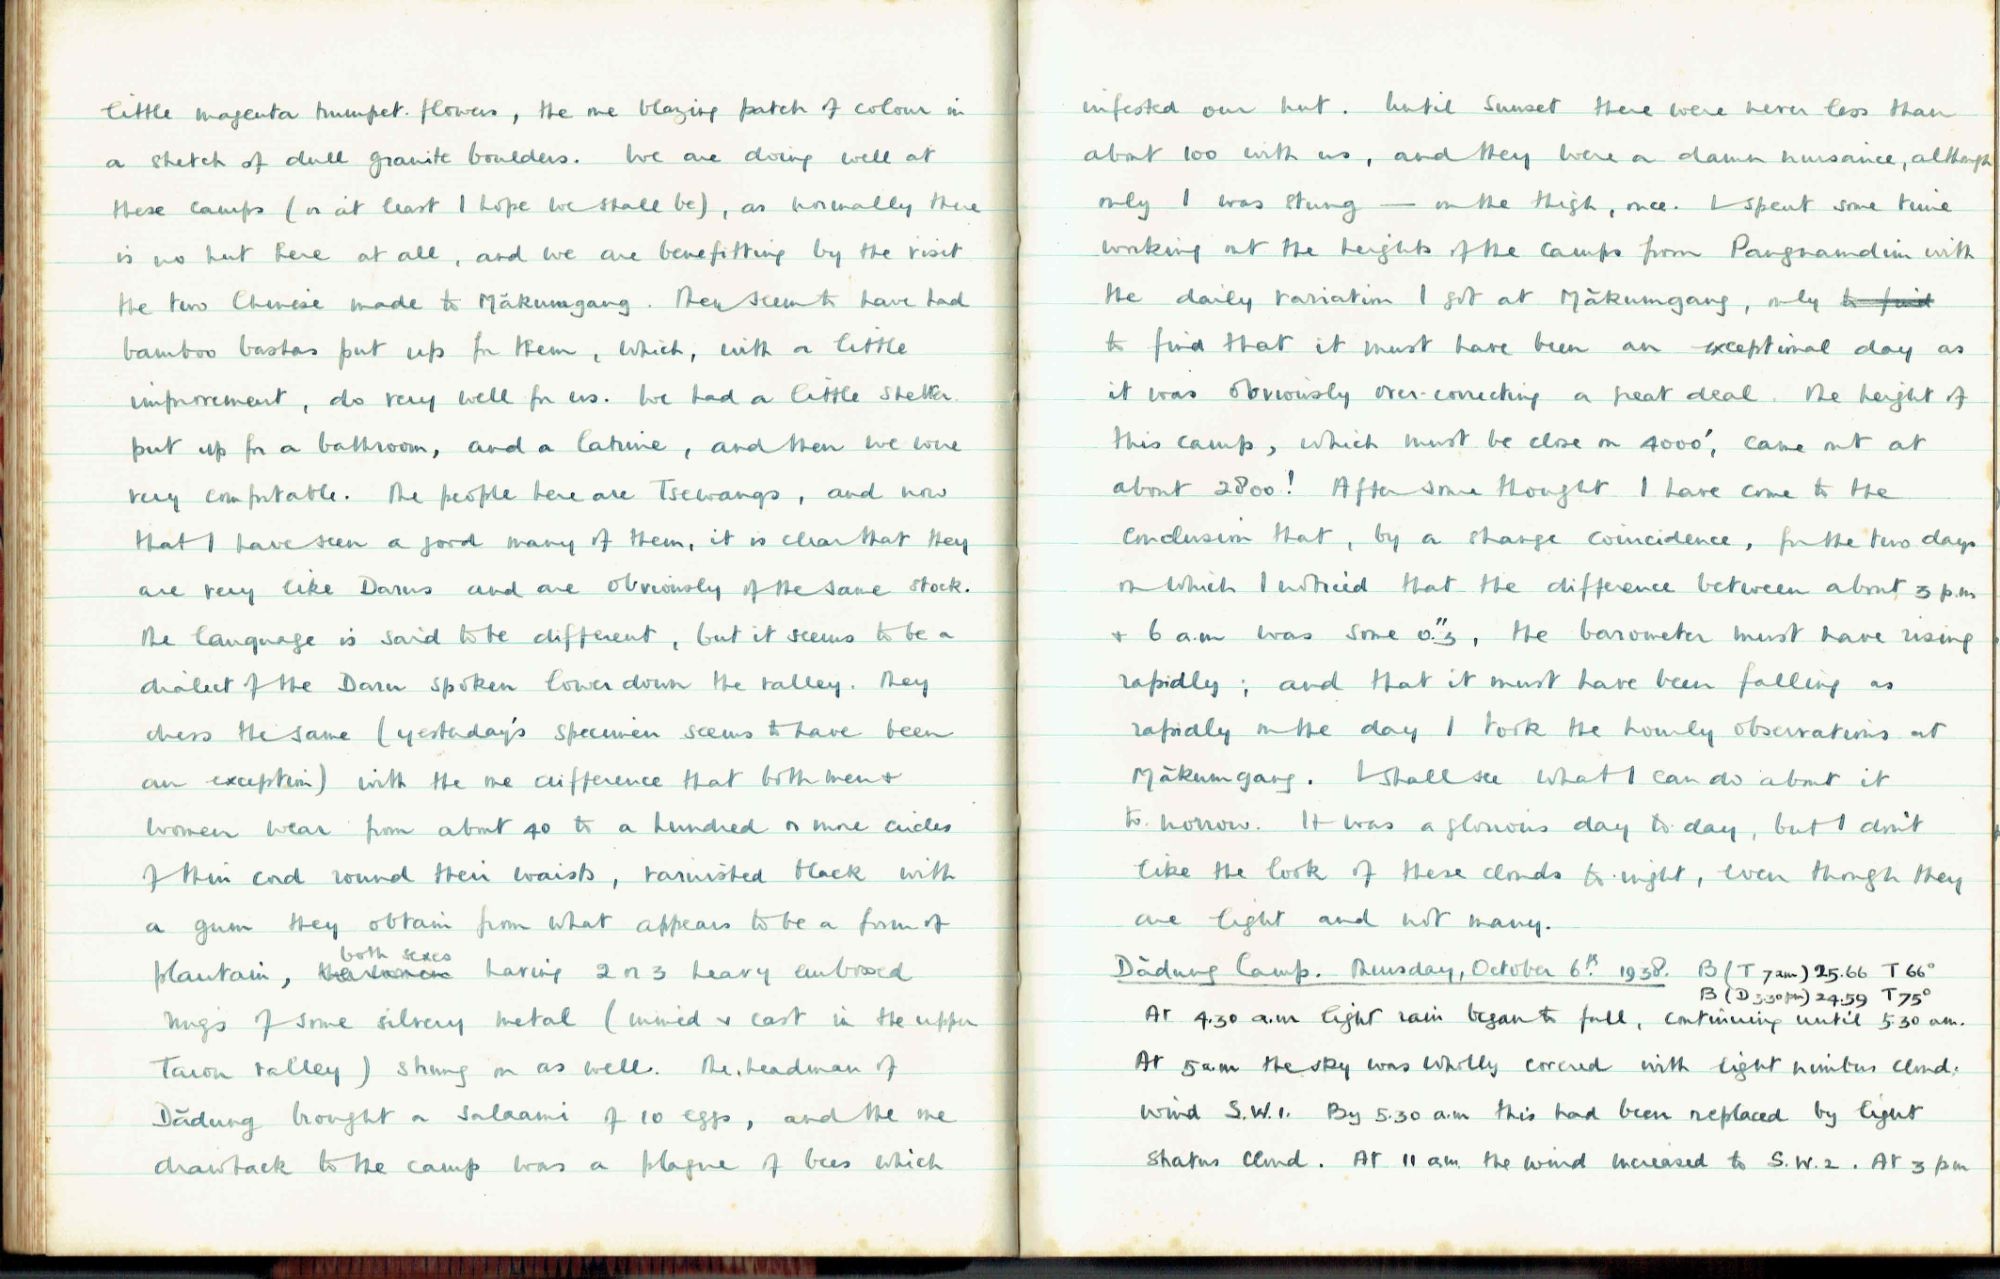 little magenta trumpet-flowers, the one blazing patch of colour in
a stretch of dull granite boulders. We are doing well at
these camps (or at least I hope we shall be), as normally there
is no hut here at all, and we are benefitting by the visit
the two Chinese made to Mākumgang. They seem to have had
bamboo bashas put up for them, which, with a little
improvement, do very well for us. We had a little shelter
put up for a bathroom, and a latrine, and then we were
very comfortable. The people here are Tsewangs, and now
that I have seen a good many of them, it is clear that they
are very like Darus and are obviously of the same stock.
The language is said to be different, but it seems to be a
dialect of the Daru spoken lower down the valley. They
dress the same (yesterday's specimen seems to have been
an exception) with the one difference that both men &
women wear from about 40 to a hundred or more circles
of thin cord round their waists, varnished black with
a gum they obtain from what appears to be a form of
plantain, both sexes having 2 or 3 heavy embossed
rings of some silvery metal (mined & cast in the upper
Taron valley) strung on as well. The headman of
Dādung brought a salaami of 10 eggs, and the one
drawback to the camp was a plague of bees which
infested our hut. Until sunset there were never less than
about 100 with us, and they were a damn nuisance, although
only I was stung — on the thigh, once. I spent some time
working out the heights of the camps from Pangnamdim with
the daily variation I got at Mākumgang, only to find
to find that it must have been an exceptional day as
it was obviously over-correcting a great deal. The height of
this camp, which must be close on 4000', came out at
about 2800! After some thought I have come to the
conclusion that, by a strange coincidence, for the two days
on which I noticed that the difference between about 3 p.m
& 6 a.m was some 0."3, the barometer must have rising
rapidly; and that it must have been falling as
rapidly on the day I took the hourly observations at
Mākumgang. I shall see what I can do about it
to-morrow. It was a glorious day to-day, but I don't
like the look of these clouds to-night, even though they
are light and not many.
Dādung Camp. Thursday, October 6th 1938. B (T 7 am) 25.66 T 66°
B (D 3.30 pm) 24.59 T 75°
At 4.30 a.m light rain began to fall, continuing until 5.30 am.
At 5 a.m the sky was wholly covered with light nimbus cloud.
Wind S.W.1. By 5.30 a.m this had been replaced by light
stratus cloud. At 11 a.m. the wind increased to S.W.2. At 3 pm